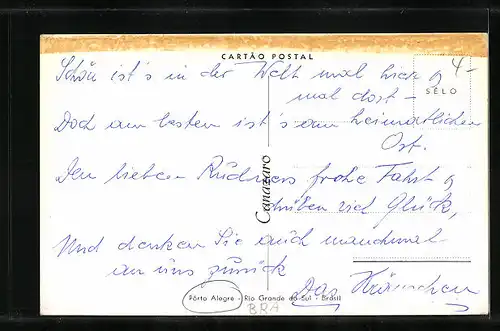 CARTÃO POSTAL
Schön ist's in der Welt mal hier &
4-
mal dort -
SELO
Doch am besten ist's am heimatlichen
Ort.
Den lieben Rüdners frohe Fahrt &
drüben viel Glück,
Und denken Sie auch manchmal
an uns zurück
Das
Canazaro
Pôrto Alegre - Rio Grande do Sul - Brasil
BRA